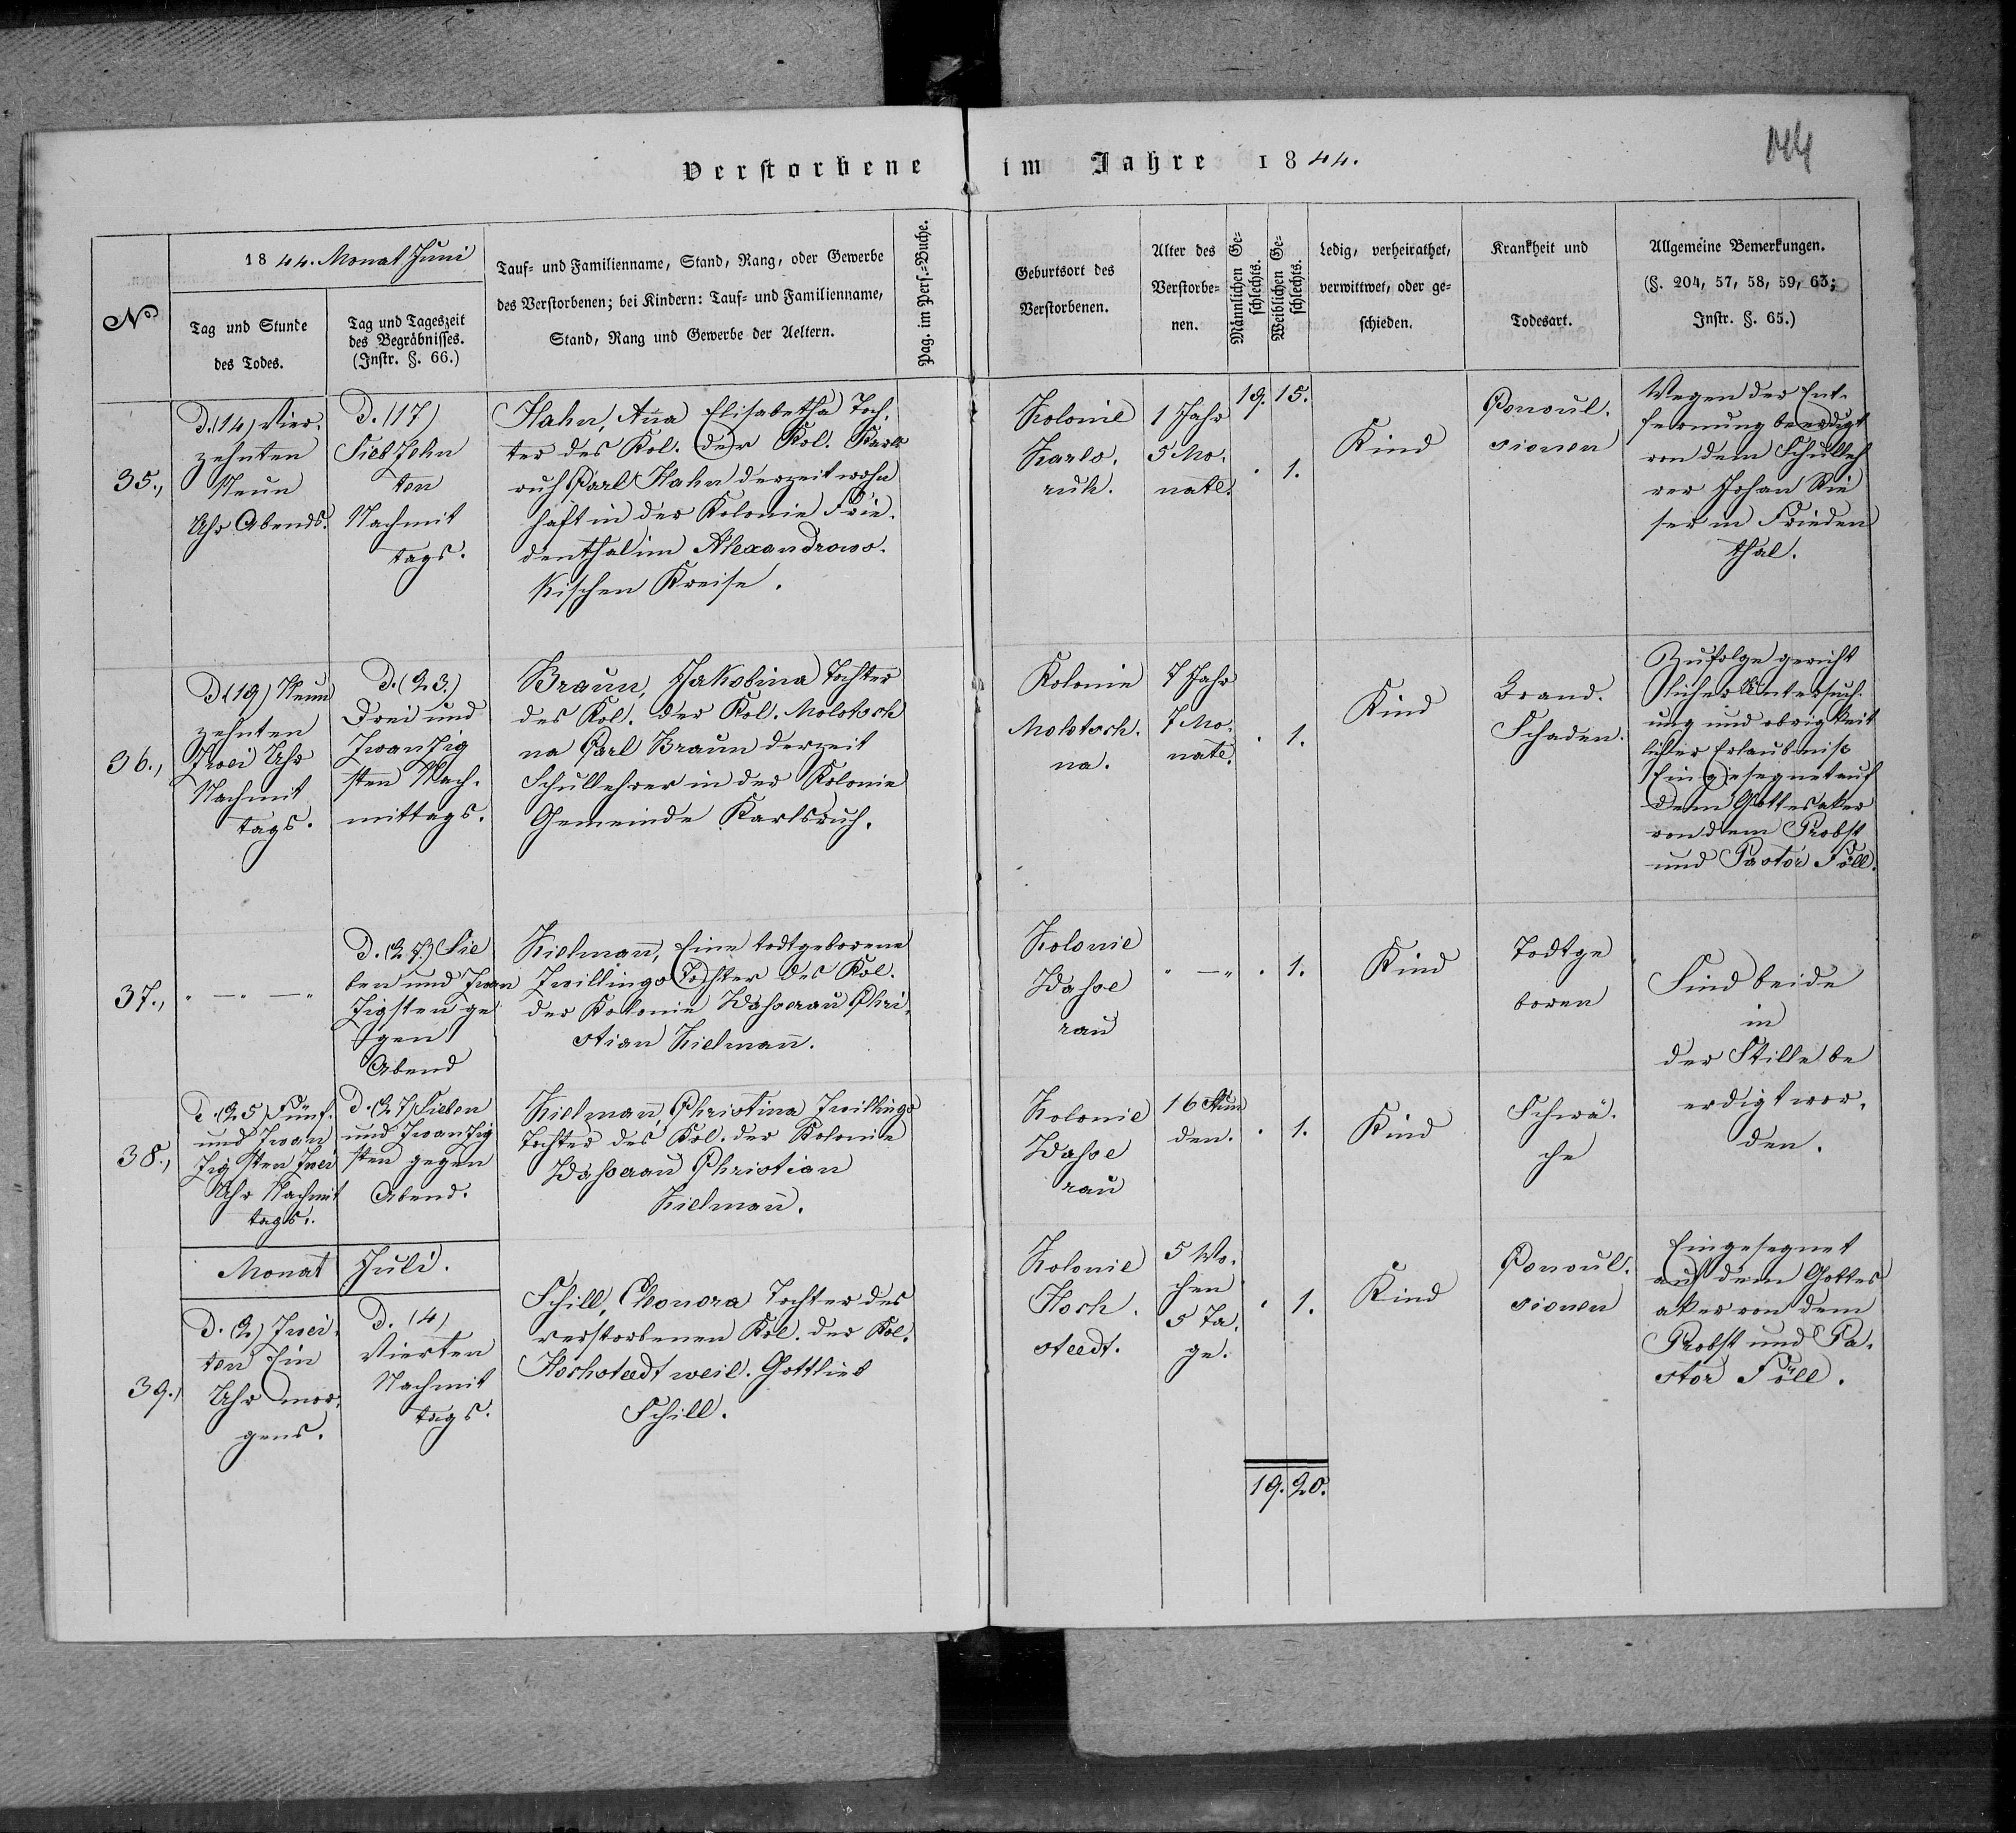 Verstorbene im Jahre 1844.
144
N°
1844. Monat Juni
Tag und Stunde
des Todes.
Tag und Tageszeit
des Begräbnisses.
(Instr. §. 66.)
Tauf- und Familienname, Stand, Rang, oder Gewerbe
des Verstorbenen; bei Kindern: Tauf- und Familienname,
Stand, Rang und Gewerbe der Aeltern.
Pag. im Pers.-Buche.
Geburtsort des
Verstorbenen.
Alter des
Verstorbe-
nen.
Männlichen Ge-
schlechts.
Weiblichen Ge-
schlechts.
Ledig, verheirathet,
verwittwet, oder ge-
schieden.
Krankheit und
Todesart.
Allgemeine Bemerkungen.
(§. 204, 57, 58, 59, 63;
Instr. §. 65.)
35.,
D. (14) Vier-
zehnten
Neun
Uhr Abends.
D. (17)
Siebzehn
ten
Nachmit
tags.
Hahn, Anna Elisabetha Toch-
ter des Kol. der Kol. Karls
ruh Carl Hahn derzeit wohn
haft in der Kolonie Frie-
denthal im Alexandrows-
kischen Kreise.
Kolonie
Karls-
ruh.
1 Jahr
5 Mo-
nate.
19. 15.
. 1.
Kind
Convul-
sionen
Wegen der Ent-
fernung beerdigt
von dem Schulleh
rer Johan Rie
ser in Frieden
thal.
36.,
D. (19) Neun
zehnten
Zwei Uhr
Nachmit
tags.
D. (23.)
Drei und
Zwanzig
sten Nach-
mittags.
Braun, Jakobina Tochter
des Kol. der Kol. Molotsch
na Carl Braun derzeit
Schullehrer in der Kolonie
Gemeinde Karlsruh.
Kolonie
Molotsch-
na.
7 Jahr
7 Mo-
nate.
. 1.
Kind
Brand-
Schaden.
Zufolge gericht
licher Untersuch-
ung und obrigkeit
licher Erlaubniss
Eingesegnet auf
dem Gottesaker
von dem Probst
und Pastor Föll.
37.,
" — " — "
D. (27.) Sie
ben und Zwan
zigsten ge
gen
Abend
Kielmann, Eine todtgeborene
Zwillings Tochter des Kol.
der Kolonie Wasserau Chri-
stian Kielmann.
Kolonie
Wasse
rau
" — "
. 1.
Kind
Todtge
boren
Sind beide
in
der Stille be
erdigt wor-
den.
38.,
D. (25) Fünf-
und Zwan
zigsten Zwei
Uhr Nachmit
tags.
D. (27) Sieben
und Zwanzig
sten gegen
Abend.
Kielmann, Christina Zwillings
Tochter des Kol. der Kolonie
Wasserau Christian
Kielmann.
Kolonie
Wasse
rau
16 Stun
den.
. 1.
Kind
Schwä-
che
Monat Juli.
39.,
D. (2) Zwei-
ten Ein
Uhr mor-
gens.
D. (4)
Vierten
Nachmit
tags.
Schill, Eleonora Tochter des
verstorbenen Kol. der Kol.
Hochstedt weil. Gottlieb
Schill.
Kolonie
Hoch-
stedt.
5 Wo-
chen
5 Ta-
ge.
. 1.
Kind
Convul-
sionen
Eingesegnet
auf dem Gottes
aker von dem
Probst und Pa-
stor Föll.
19. 20.